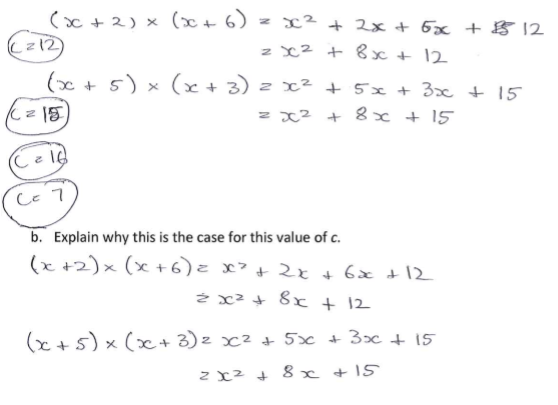 (x + 2) × (x + 6) = x² + 2x + 6x + 12
c = 12
= x² + 8x + 12
(x + 5) × (x + 3) = x² + 5x + 3x + 15
c = 15
= x² + 8x + 15
c = 16
c = 7
b. Explain why this is the case for this value of c.
(x + 2) × (x + 6) = x² + 2x + 6x + 12
= x² + 8x + 12
(x + 5) × (x + 3) = x² + 5x + 3x + 15
= x² + 8x + 15